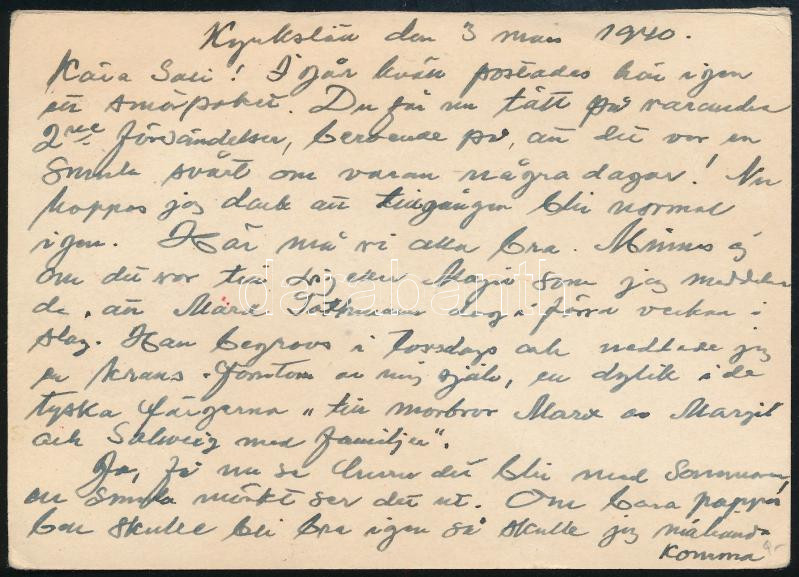 Kyrkslätt den 3 mars 1940.
Kära Savi! I går kväll postades här igen
ett smörpaket. Du får nu tätt på varandra
2ne försändelser, beroende på, att det var en
smula svårt om varan några dagar! Nu
hoppas jag dock att tillgången blir normal
igen. Här må vi alla bra. Minns ej
om det var till dig eller Maja som jag meddela
de, att Marx dog i förra veckan i
slag. Han begrovs i torsdags och nedlade jag
en krans förutom av mig själv, en dylik i de
tyska färgerna "till morbror Marx av Margit
och Solveig med familjer".
Ja, få nu se huru det blir med sommaren,
en smula mörkt ser det ut. Om bara pappas
ben skulle bli bra igen så skulle jag måhända
komma
darabanth